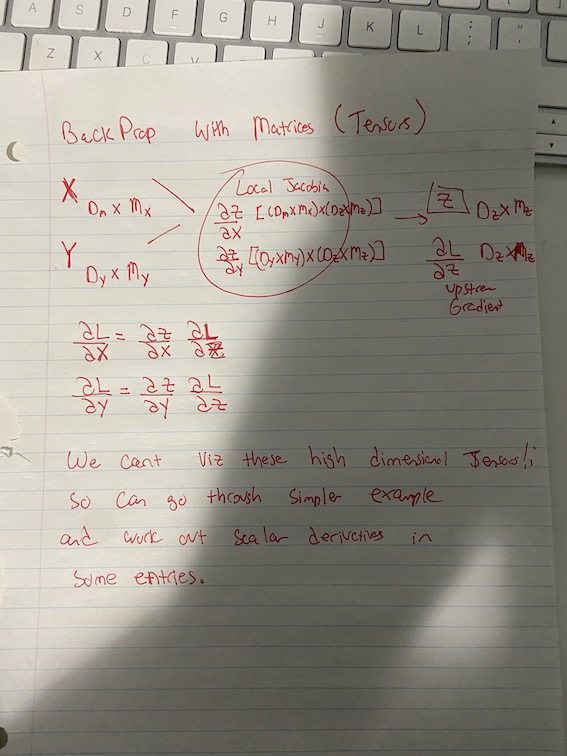 A S D F G H J K L : ; "
Z X C V
BackProp with Matrices (Tensors)
X Dₙ x Mₓ
Local Jacobin
∂z/∂x [(Dₙ x Mₓ) x (D_z x M_z)]
→ z D_z x M_z
Y D_y x M_y
∂z/∂y [(D_y x M_y) x (D_z x M_z)]
∂L/∂z D_z x M_z
Upstream
Gradient
∂L/∂X = ∂z/∂x ∂L/∂z
∂L/∂Y = ∂z/∂y ∂L/∂z
We cant Viz these high dimensional Tensors!
So can go through simpler example
and work out scalar derivatives in
some entries.